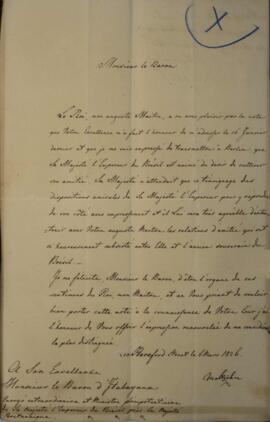 Monsieur le Baron
Le Roi, mon auguste Maître, a vu avec plaisir par la note
que Votre Excellence m'a fait l'honneur de m'adresser le 16 Janvier
dernier et que je me suis empressé de transmettre à Berlin que
Sa Majesté l'Empereur du Brésil est animé du désir de cultiver
son amitié. Sa Majesté n'attendait que ce témoignage des
dispositions amicales de Sa Majesté l'Empereur pour y répondre
de son côté avec empressement et il Lui sera très agréable d'entre
tenir avec Votre auguste Maître les relations d'amitié qui ont
si heureusement subsisté entre Elle et l'ancien souverain du
Brésil.
Je me félicite Monsieur le Baron d'être l'organe de ces
sentimens du Roi, mon Maître, et en Vous priant de vouloir
bien porter cette note à la connaissance de Votre Cour j'ai
l'honneur de Vous offrir l'expression renouvelée de ma considération
la plus distinguée
Hereford Street le 6 Mars 1826.
Maltzahn
A Son Excellence
Monsieur le Baron d'Itabayana
Envoyé extraordinaire et Ministre plénipotentiaire
de Sa Majesté l'Empereur du Brésil près Sa Majesté
Britannique